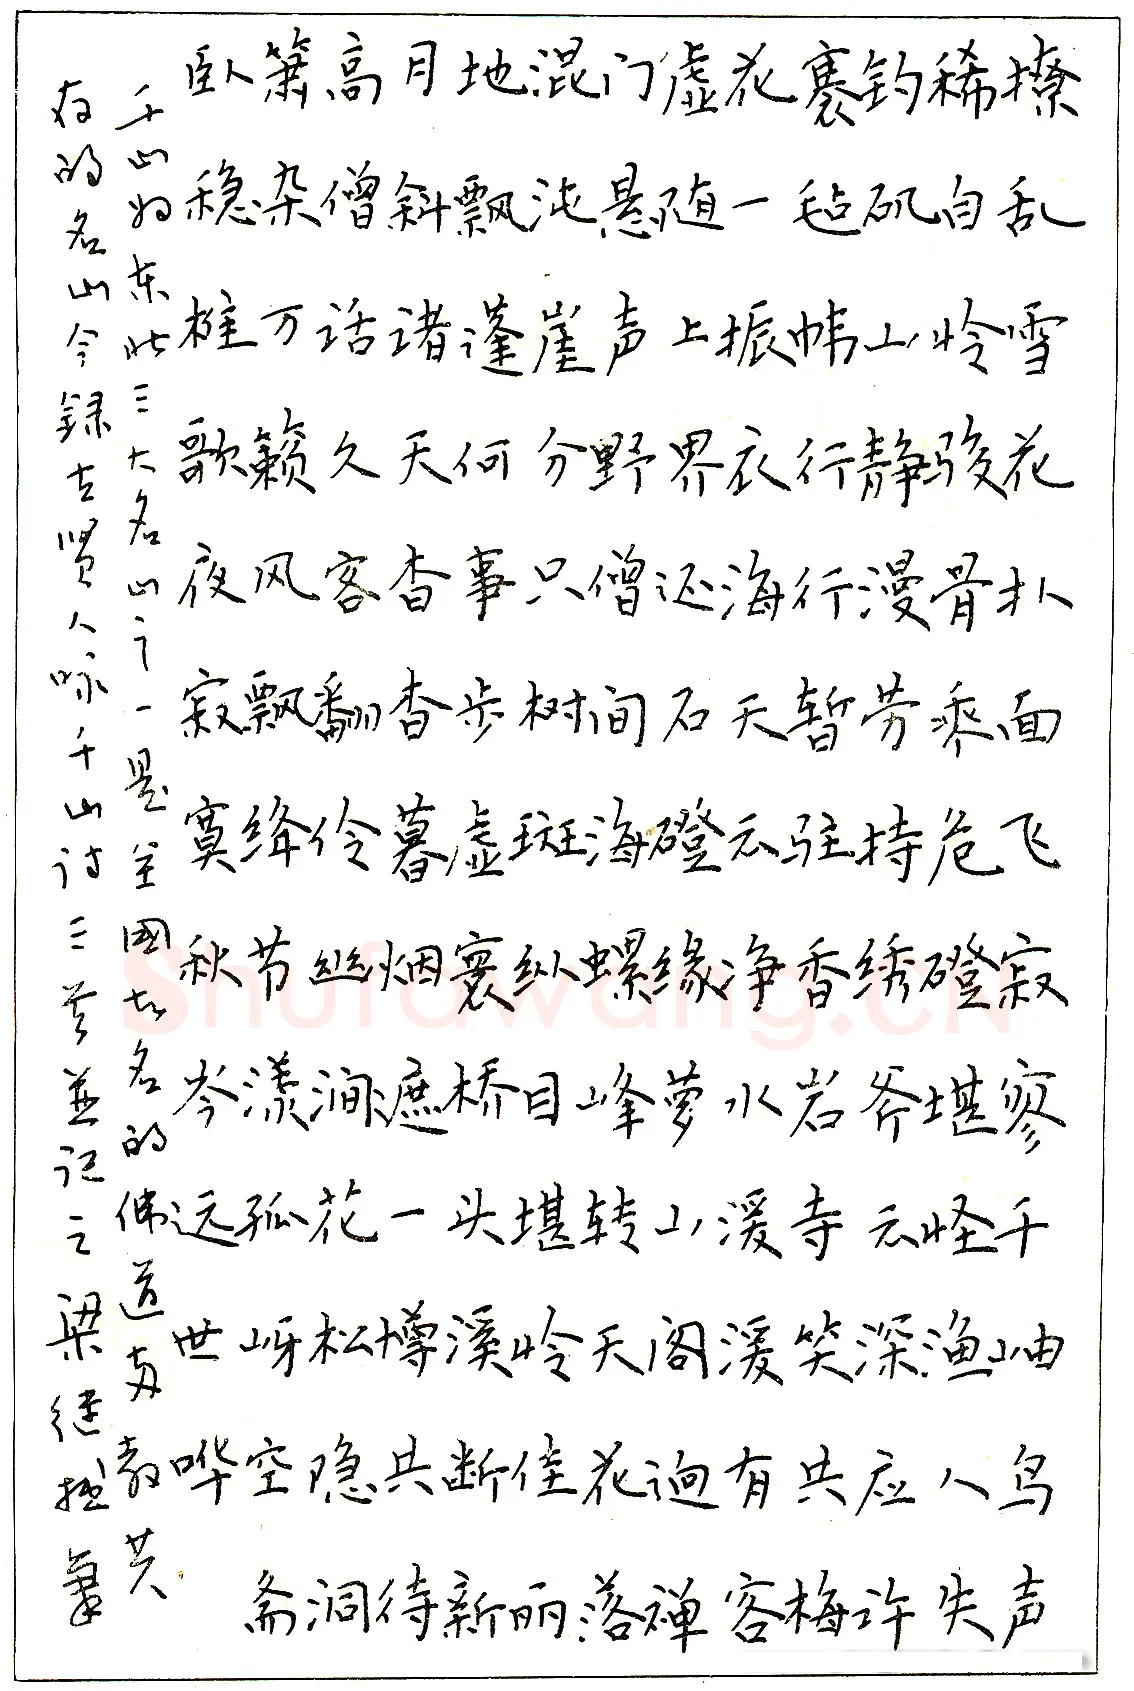 撩乱雪花扑面飞寂寥千岫鸟声
稀自怜骏骨乘危磴堪怪渔人失
钓矶山静漫劳持绣斧云深应许
裹毡帏行行暂驻香岩寺笑共梅
花一振衣海天云净水湲湲有客
虚随上界还石磴缘萝山阁迥禅
门悬声野僧间海螺峰转天花落
混沌崖分只树斑纵目堪怜佳丽
地飘蓬何事步虚寰桥头溪断新
月斜诸天杳杳暮烟遮一墫共待
高僧话久客翻伶丝涧花松隐洞
箫杂万籁风飘绛节漾孤岈空斋
卧稳樁歌夜寂寞秋岑远世哗
千山为东北三大名山之一是全國知名的佛道两教共
存的名山今録古贤人咏千山诗三首並记之梁继振笔
Shufawang.CN